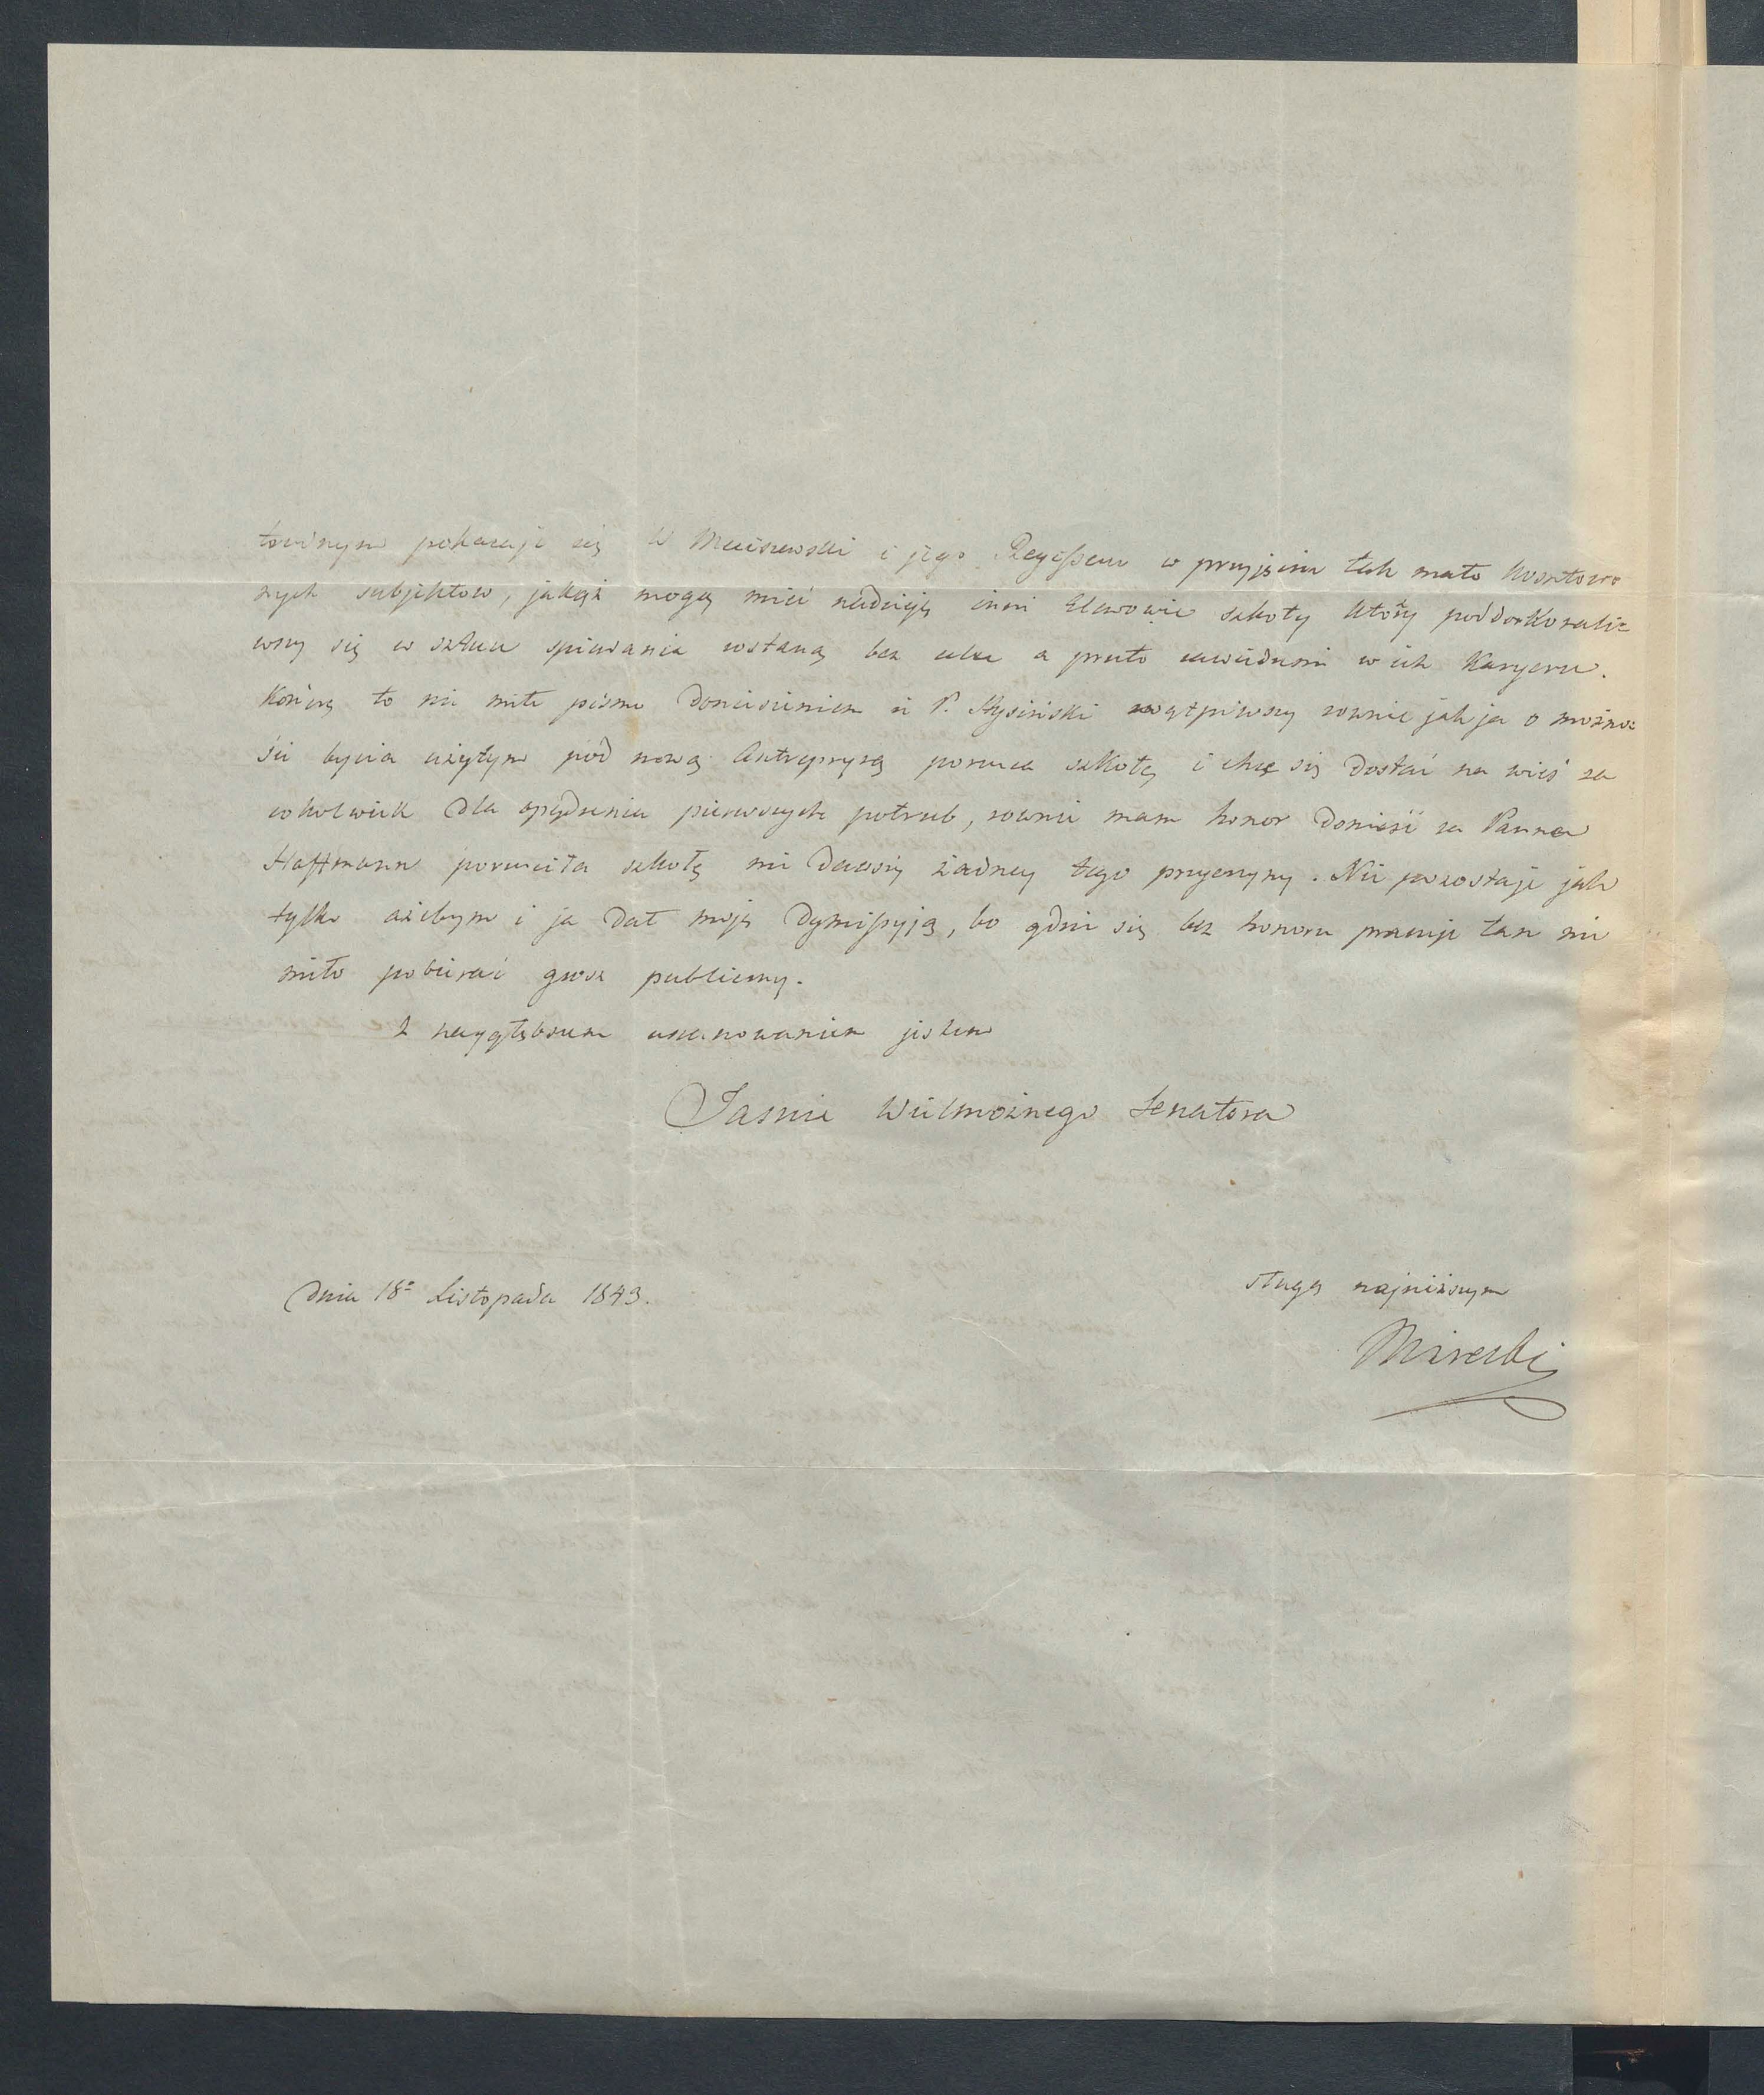 townym pokazuje się W Meciszewski i jego Regisseur w przyjęciu tak mało kosztowo
nych subjektow, jakąż mogą mieć nadzieję inni Elewowie szkoły którzy poddoskonali=
wszy się w sztuce spiewania zostaną bez celu a przeto zawiedzeni w ich Karyerze.
Kończę to nie miłe pismo doniesieniem iż P. Stysiński zwątpiwszy rownie jak ja o możno=
ści bycia użytym pod nową Antrepryzą porzuca szkołę i chce się dostać na wieś za
cokolwiek dla opędzenia pierwszych potrzeb, rownie mam honor donieść że Panna
Hoffmann porzuciła szkołę nie dawszy żadney tego przyczyny. Nie pozostaje jak
tylko ażebym i ja dał moję dymissyją, bo gdzie się bez honoru pracuje tam nie
miło pobierać grosz publiczny.
Z naygłębszem uszanowaniem jestem
Jasnie Wielmożnego Senatora
sługą najniższym
Dnia 18º Listopada 1843.
Mirecki